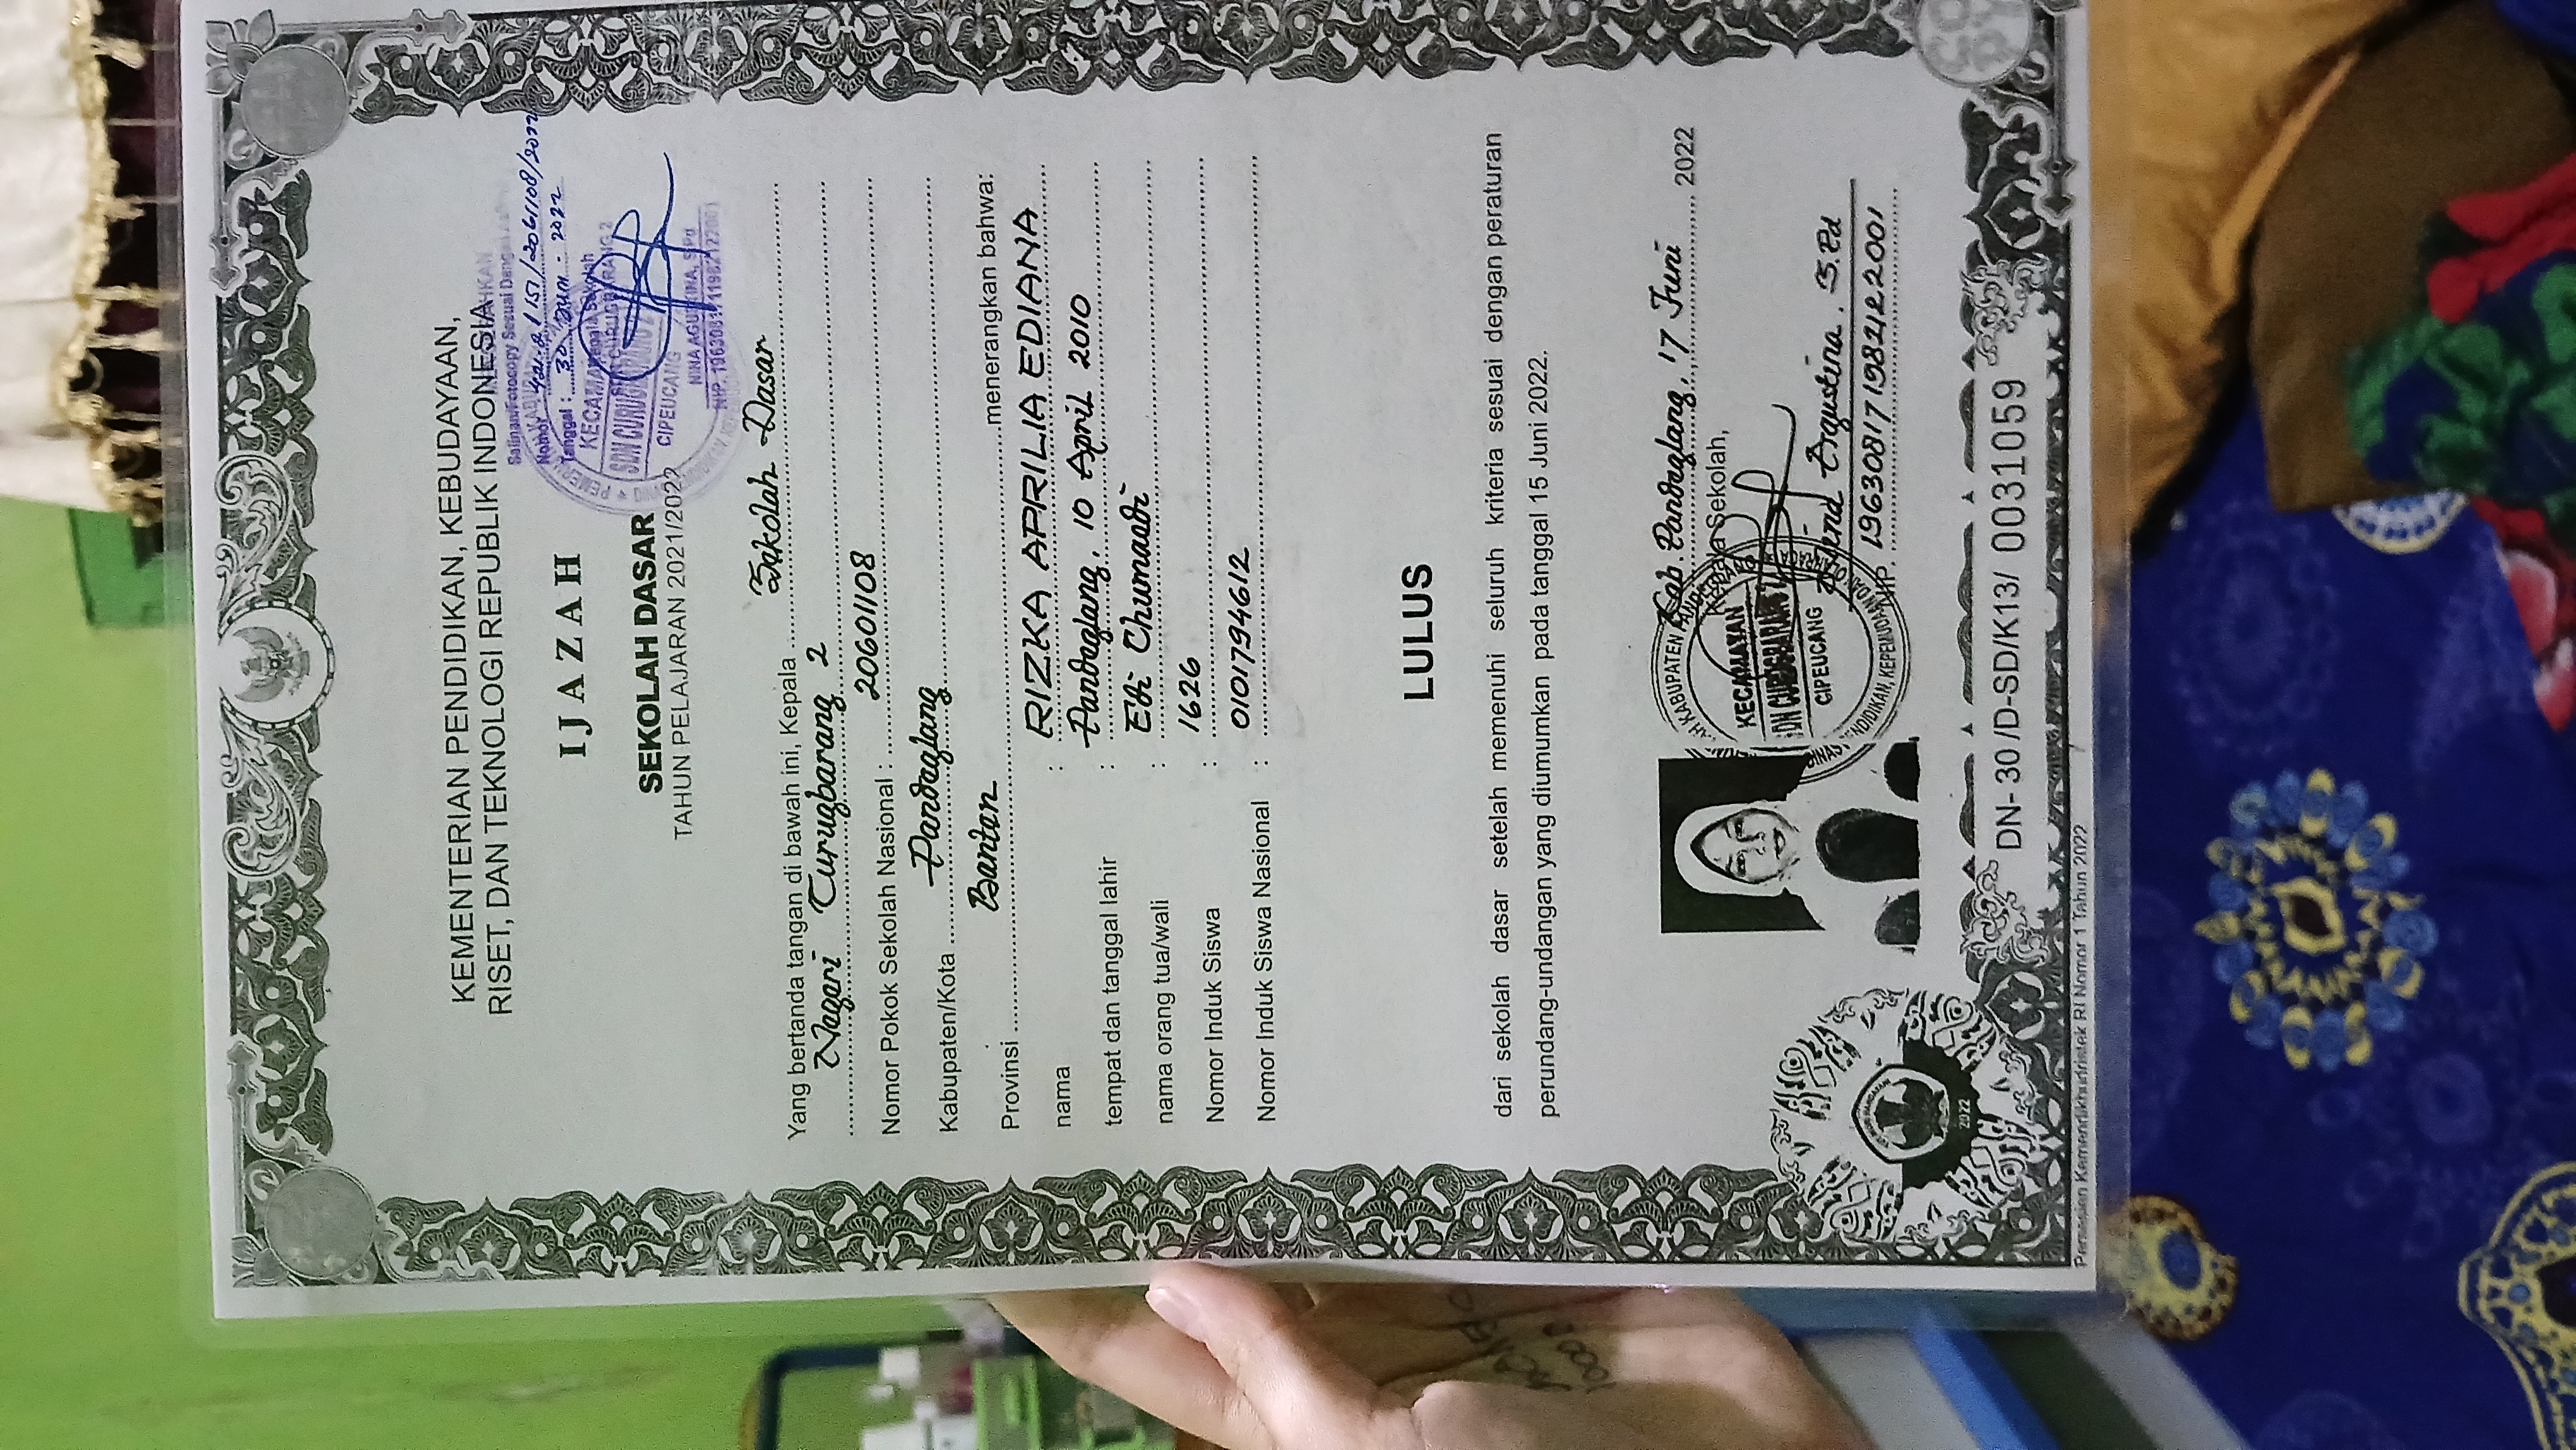 KEMENTERIAN PENDIDIKAN, KEBUDAYAAN,
RISET, DAN TEKNOLOGI REPUBLIK INDONESIA
Salinan/Fotocopy Sesuai
Nomor : 421.2/151/20601108/2022
Tanggal : 30 Juni - 2022
Kepala Sekolah
SDN CURUGBARANG 2
NINA AGUSTINA, S.Pd
NIP. 196308171982122001
KECAMATAN
SDN CURUGBARANG 2
CIPEUCANG
IJAZAH
SEKOLAH DASAR
TAHUN PELAJARAN 2021/2022
Yang bertanda tangan di bawah ini, Kepala Sekolah Dasar
Negeri Curugbarang 2
Nomor Pokok Sekolah Nasional : 20601108
Kabupaten/Kota Pandeglang
Provinsi Banten menerangkan bahwa:
nama : RIZKA APRILIA EDIANA
tempat dan tanggal lahir : Pandeglang, 10 April 2010
nama orang tua/wali : Edi Chumaedi
Nomor Induk Siswa : 1626
Nomor Induk Siswa Nasional : 0101794612
LULUS
dari sekolah dasar setelah memenuhi seluruh kriteria sesuai dengan peraturan
perundang-undangan yang diumumkan pada tanggal 15 Juni 2022.
Kab. Pandeglang, 17 Juni 2022
Kepala Sekolah,
KECAMATAN
SDN CURUGBARANG 2
CIPEUCANG
Nina Agustina, S.Pd
NIP. 196308171982122001
2022
DN- 30 /D-SD/K13/ 0031059
Persesjen Kemendikbudristek RI Nomor 1 Tahun 2022